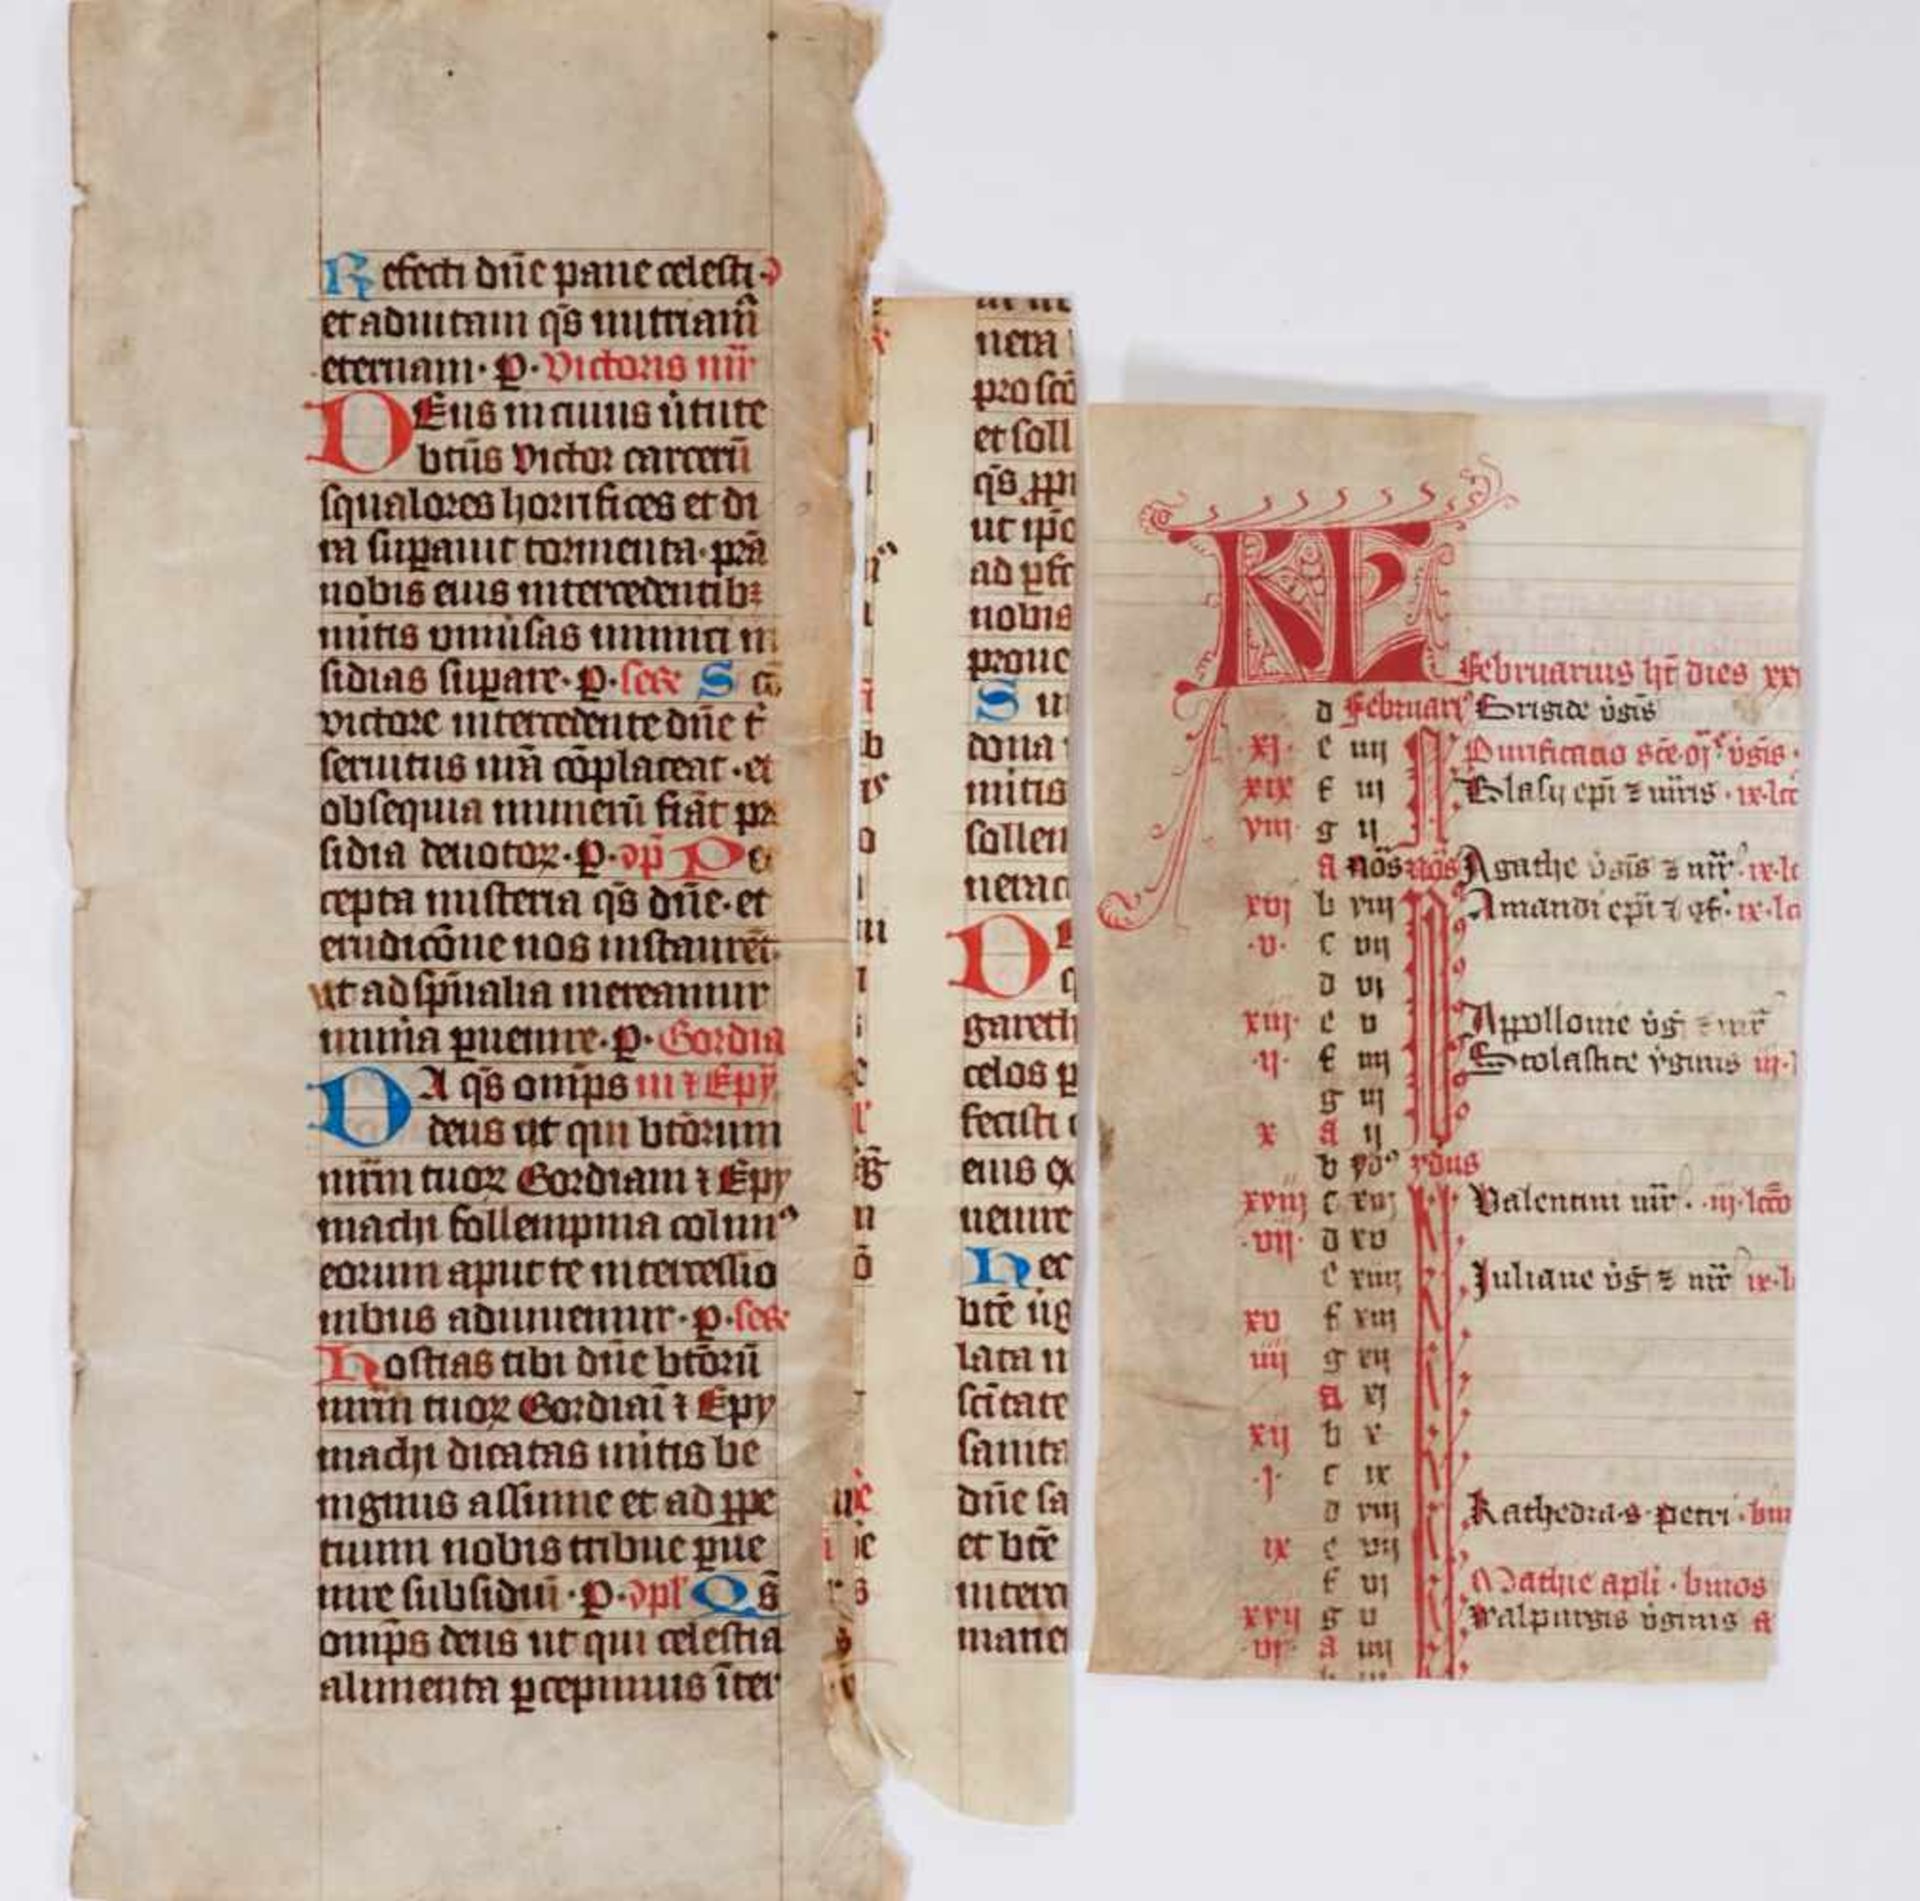 Refecti dn̄e pane celesti·
et ad vitam qs̄ nutriam̄
eternam· p̱· Victoris mr̄
DEus in cuius v̓tute
btūs Victor carcerū
squalores horrifices et di
ra suꝑauit tormenta· prā
nobis eius intercedentibꝫ
mitis vniūsas inimici in
sidias suꝑare· p̱· secr̄ S cō
victore intercedente dn̄e t̓
seruitus nrā cōplaceat· et
obsequia munerū fiāt pre
sidia deuotoꝝ· p̱· ɔp̄ Per
cepta misteria qs̄ dn̄e· et
erudicōne nos instaurēt
ut ad spūalia mereamur
munia ꝑuenire· p̱· Gordia
DA qs̄ omp̄s ni ⁊ Epy
deus ut qui btōrum
mr̄m tuoꝝ Gordiani ⁊ Epy
machi sollempnia colimꝰ
eorum aput te intercessio
nibus adiuuemur· p̱· secr̄
Hostias tibi dn̄e btōrū
mr̄m tuoꝝ Gordiaī ⁊ Epy
machi dicatas mitis be
nignus assume et ad ꝑpe
tuum nobis tribue ꝑue
nire subsidiū· p̱· ɔpl̄ Qs̄
omp̄s deus ut qui celestia
alimenta ꝑcepimus īter
nera
pro scō
et soll
qs̄ ꝑpi
ut ip̄o
ad ꝑfc
nobis
proue
Su
dona
mitis
sollen
nerac
D
q
gareth
celos p
fecisti
eius ex
uenire
Hec
btē vig
lata n
sc̄itate
sanita
dn̄e sa
et btē
interc
mane
KL Februarius ht̄ dies xx
d Februariꝰ Brigide v̓gis̄
xj· e iiij Purificatio sc̄e· v̓gis̄·
xix f iij Blasij ep̄i ⁊ mr̄is· ix·lcc
viij· g ij
a nōs nōs Agathe v̓gis̄ ⁊ mr̄· ix·lc
xvj b viij Amandi ep̄i ⁊ ꝯf· ix·lc
·v· c vij
d vj
xiij· e v Appollonie v̓ḡ ⁊ mr̄
·ij· f iiij Scolastice v̓ginis iij·l
g iij
x a ij
b ydꝰ ydus
xviij c xvj Valentini mr̄· iij·lcc̄o
·vij· d xv
e xiiij Juliane v̓ḡ ⁊ mr̄ ix·l
xv f xiij
iiij g xij
a xj
xij b x
·j· c ix
d viij Kathedra·s·petri·bin
ix e vij
f vj Mathie apl̄i·binos
xvij g v walpurgis v̓ginis a
·vj· a iiij